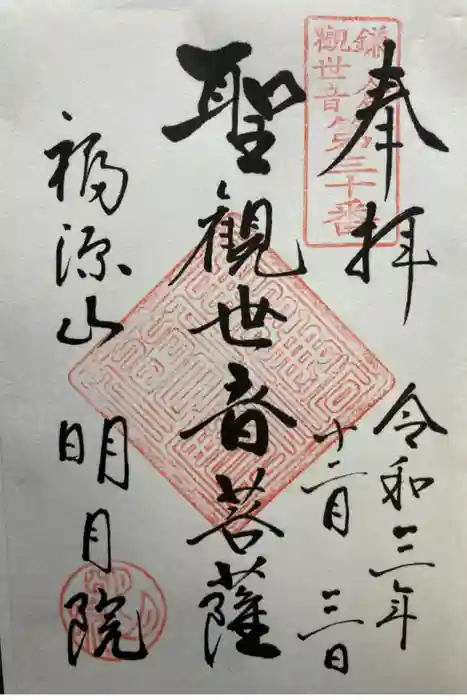 奉拝
鎌倉
觀世音第三十番
令和三年
十二月三日
聖観世音菩薩
福源山明月院